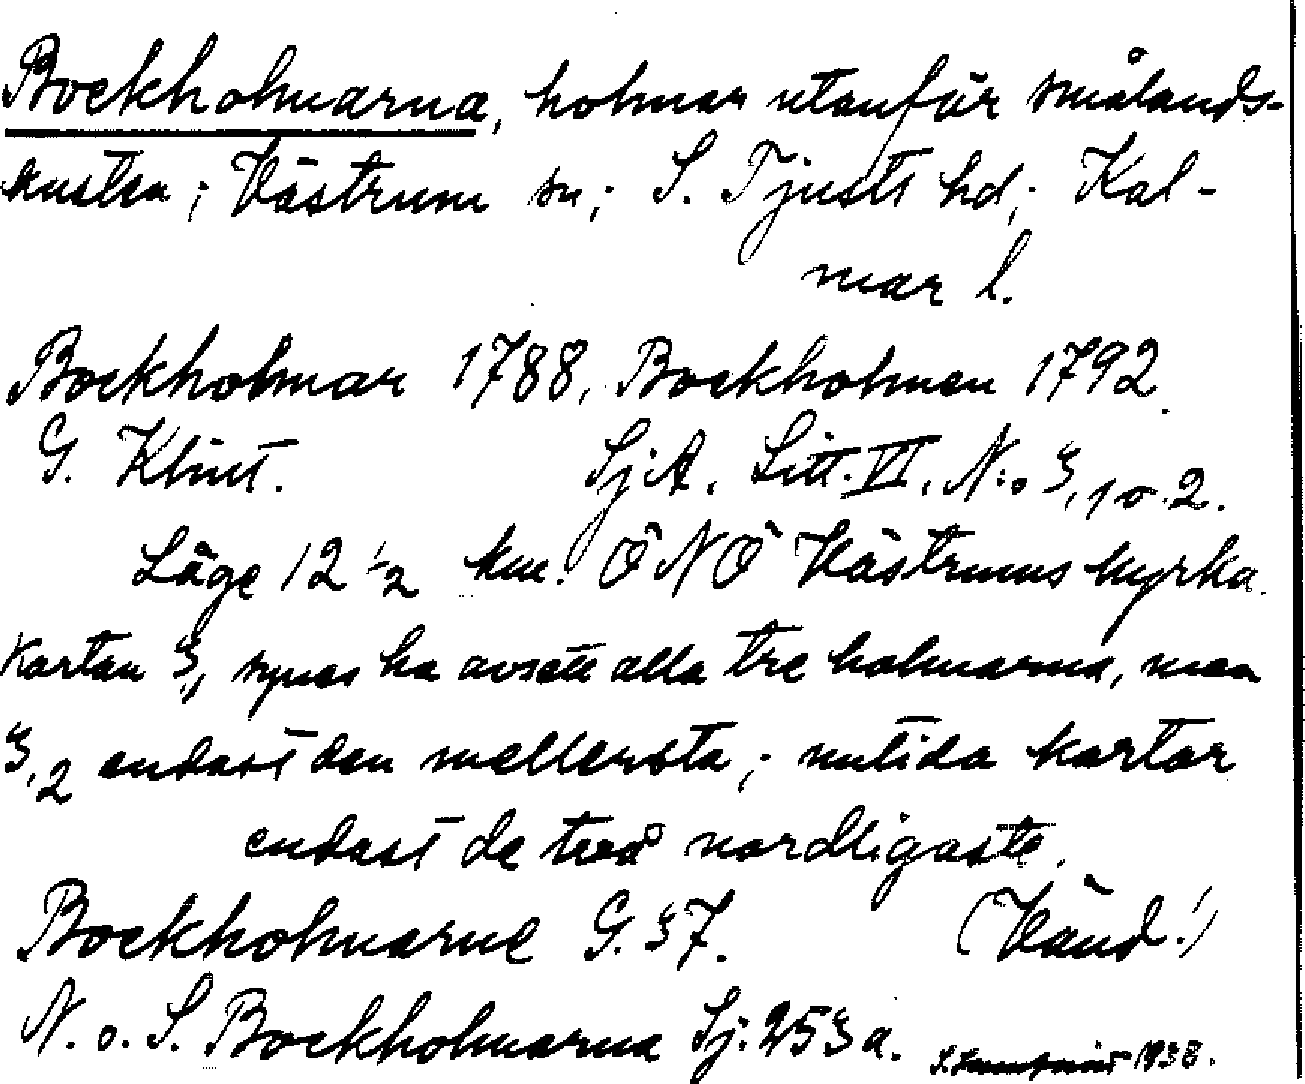 Bockholmarna, holmar utanför smålands-
kusten; Västrum sn; S. Tjusts hd; Kal-
mar l.
Bockholmar 1788, Bockholmen 1792.
G. Klint. SjA. Litt. VI. N:o 3,1 o. 2.
Läge 12 1/2 km. ÖNÖ Västrums kyrka.
Kartan 3,1 synes ha avsett alla tre holmarna, men
3,2 endast den mellersta; nutida kartor
endast de två nordligaste.
Bockholmarne G. 37. (Vänd!)
N. o. S. Bockholmarna Sj. 253 a. 1938.